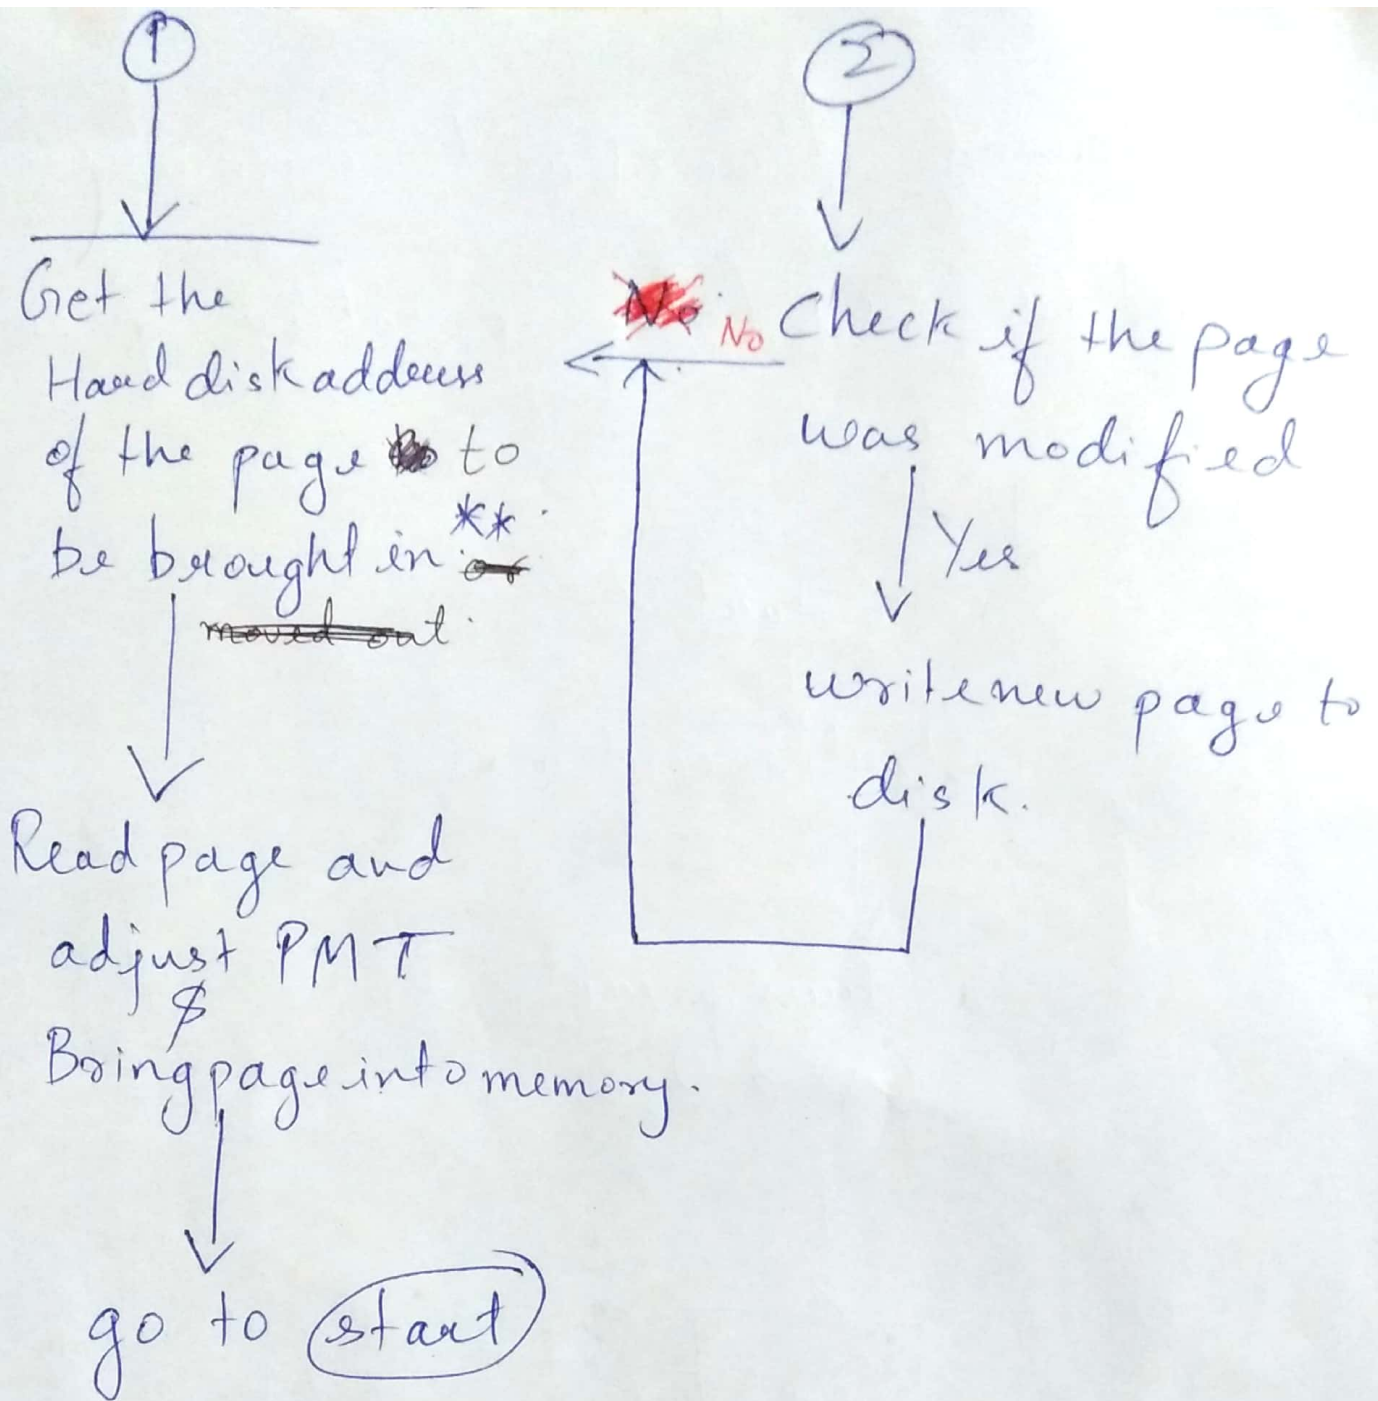 1
Get the
Hard disk address
of the page to
be brought in **
moved out.
Read page and
adjust PMT
&
Bring page into memory.
go to start
2
No
Check if the page
was modified
Yes
write new page to
disk.